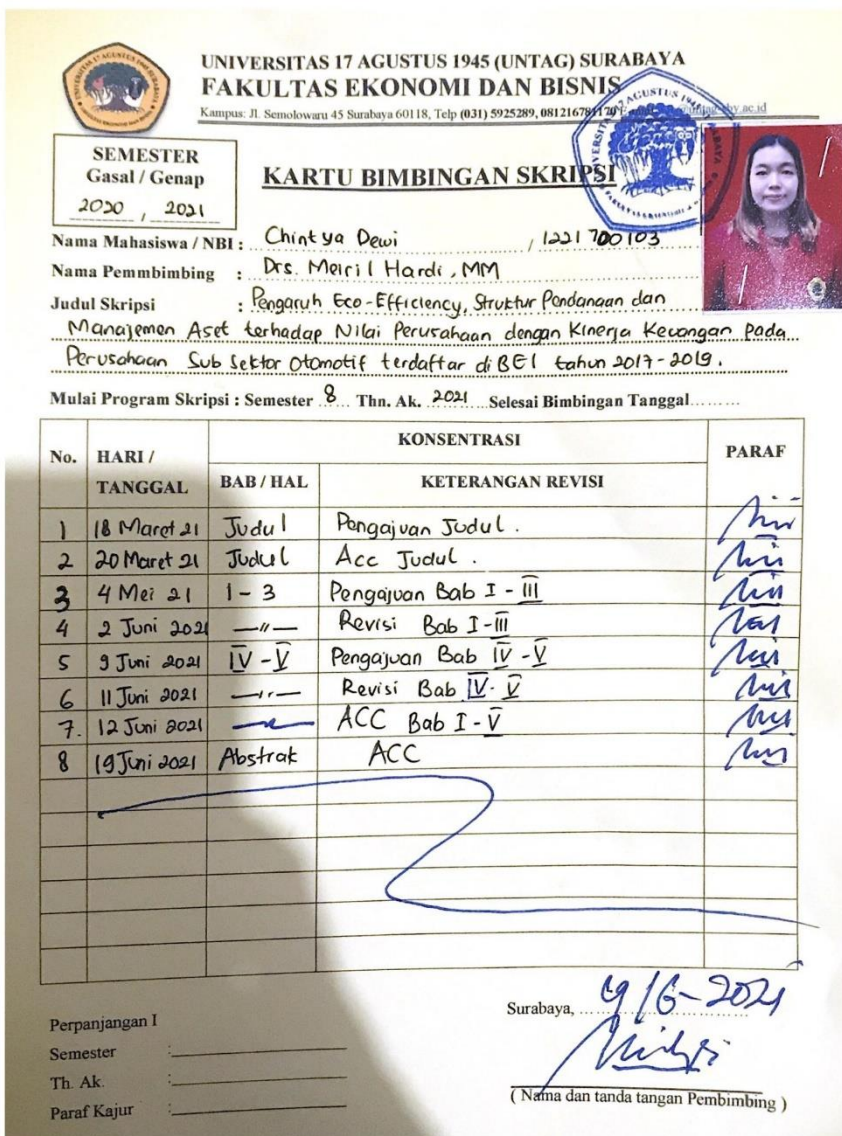 UNIVERSITAS 17 AGUSTUS 1945 (UNTAG) SURABAYA
FAKULTAS EKONOMI DAN BISNIS
Kampus: Jl. Semolowaru 45 Surabaya 60118, Telp (031) 5925289, 081216781170
SEMESTER
Gasal / Genap
2020 , 2021
KARTU BIMBINGAN SKRIPSI
Nama Mahasiswa / NBI : Chintya Dewi / 1221700103
Nama Pemmbimbing : Drs. Meiril Hardi, MM
Judul Skripsi : Pengaruh Eco-Efficiency, Struktur Pendanaan dan
Manajemen Aset terhadap Nilai Perusahaan dengan Kinerja Keuangan pada
Perusahaan Sub Sektor Otomotif terdaftar di BEI tahun 2017-2019.
Mulai Program Skripsi : Semester 8 Thn. Ak. 2021 Selesai Bimbingan Tanggal
No. HARI / TANGGAL KONSENTRASI PARAF
BAB / HAL KETERANGAN REVISI
1 18 Maret 21 Judul Pengajuan Judul .
2 20 Maret 21 Judul Acc Judul .
3 4 Mei 21 1 - 3 Pengajuan Bab I - III
4 2 Juni 2021 —〃— Revisi Bab I-III
5 9 Juni 2021 IV - V Pengajuan Bab IV - V
6 11 Juni 2021 —〃— Revisi Bab IV - V
7. 12 Juni 2021 ACC Bab I - V
8 19 Juni 2021 Abstrak ACC
Perpanjangan I
Semester :
Th. Ak. :
Paraf Kajur :
Surabaya, /6-2021
( Nama dan tanda tangan Pembimbing )